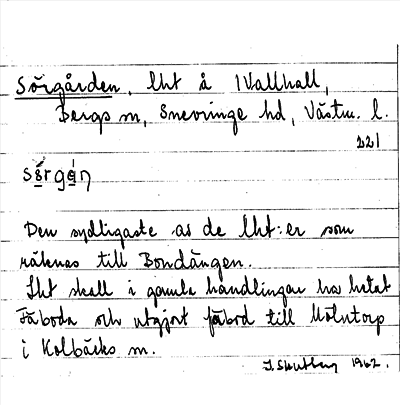 Sörgården, lht å 1 Vallhall,
Bergs sn, Snevringe hd, Västm. l.
221
Den sydligaste av de lht:er som
räknas till Bondängen.
Lht skall i gamla handlingar ha hetat
Fäboda och utgjort fäbod till Mölntorp
i Kolbäcks sn.
1962.